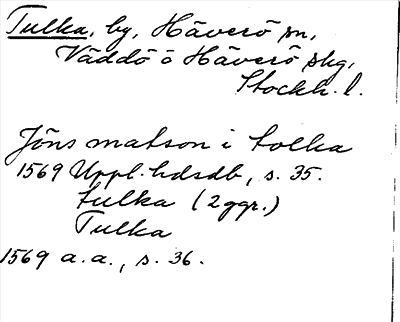 Tulka, by, Häverö sn,
Väddö o Häverö skg,
Stockh. l.
Jöns matson i tolka
1569 Uppl. hdsdb, s. 35.
tulka (2 ggr.)
Tulka
1569 a.a., s. 36.